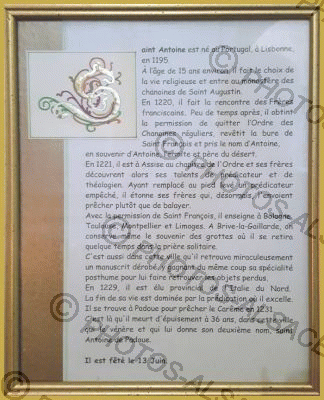 Saint Antoine est né au Portugal, à Lisbonne,
en 1195.
A l'âge de 15 ans environ, il fait le choix de
la vie religieuse et entre au monastère des
chanoines de Saint Augustin.
En 1220, il fait la rencontre des Frères
franciscains. Peu de temps après, il obtint
la permission de quitter l'Ordre des
Chanoines réguliers, revêtit la bure de
Saint François et pris le nom d'Antoine,
en souvenir d'Antoine, ermite et père du désert.
En 1221, il est à Assise au chapitre de l'Ordre et ses frères
découvrent alors ses talents de prédicateur et de
théologien. Ayant remplacé au pied levé un prédicateur
empêché, il étonne ses frères qui, désormais, l'envoient
prêcher plutôt que de balayer.
Avec la permission de Saint François, il enseigne à Bologne,
Toulouse, Montpellier et Limoges. A Brive-la-Gaillarde, on
conserve le souvenir des grottes où il se retira
quelque temps dans la prière solitaire.
C'est aussi dans cette ville qu'il retrouva miraculeusement
un manuscrit dérobé, gagnant du même coup sa spécialité
posthume pour lui faire retrouver les objets perdus.
En 1229, il est élu provincial de l'Italie du Nord.
La fin de sa vie est dominée par la prédication où il excelle.
Il se trouve à Padoue pour prêcher le Carême en 1231.
C'est là qu'il meurt d'épuisement à 36 ans, dans cette ville
qui le vénère et qui lui donne son deuxième nom, saint
Antoine de Padoue.
Il est fêté le 13 Juin.
© PHOTOS-ALSACE